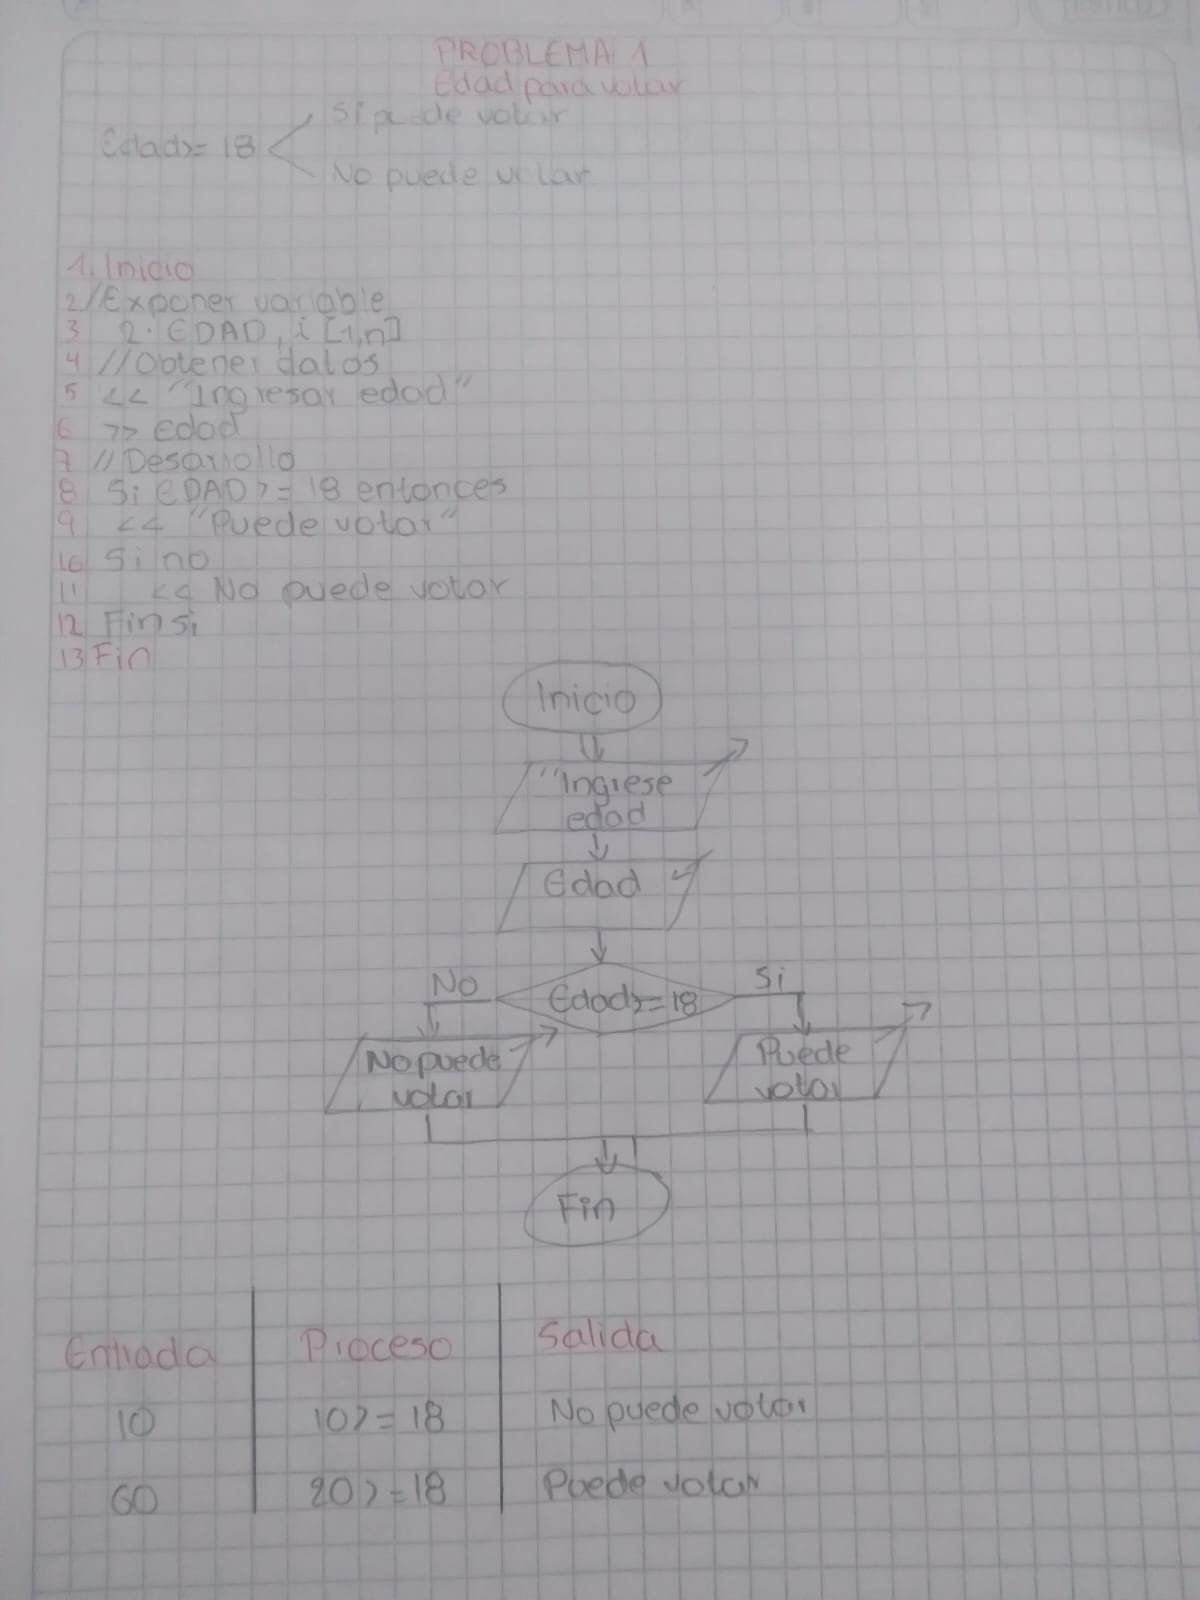 PROBLEMA 1
Edad para votar
Si puede votar
Edad>= 18
No puede votar
1. Inicio
2 //Exponer variable
3 2. EDAD, i [1,n]
4 //Obtener datos
5 << "Ingresar edad"
6 >> edad
7 //Desarrollo
8 Si EDAD>= 18 entonces
9 << "Puede votar"
10 Si no
11 << No puede votar
12 Fin si
13 Fin
Inicio
"Ingrese
edad
Edad
No
Edad>=18
Si
No puede
votar
Puede
votar
Fin
Entrada Proceso Salida
10 10>=18 No puede votar
60 20>=18 Puede votar